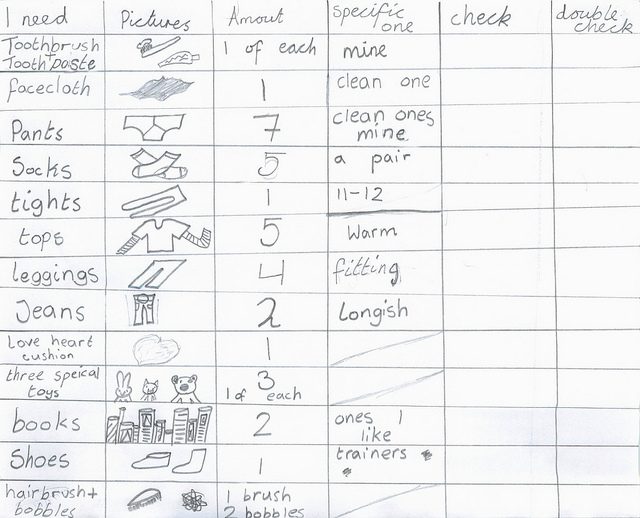 I need Pictures Amout specific one check double check
Toothbrush + Toothpaste 1 of each mine
facecloth 1 clean one
Pants 7 clean ones mine
Socks 5 a pair
tights 1 11-12
tops 5 Warm
leggings 4 fitting
Jeans 2 Longish
Love heart cushion 1
three speical toys 3 1 of each
books 2 ones I like
Shoes 1 trainers
hairbrush + bobbles 1 brush 2 bobbles